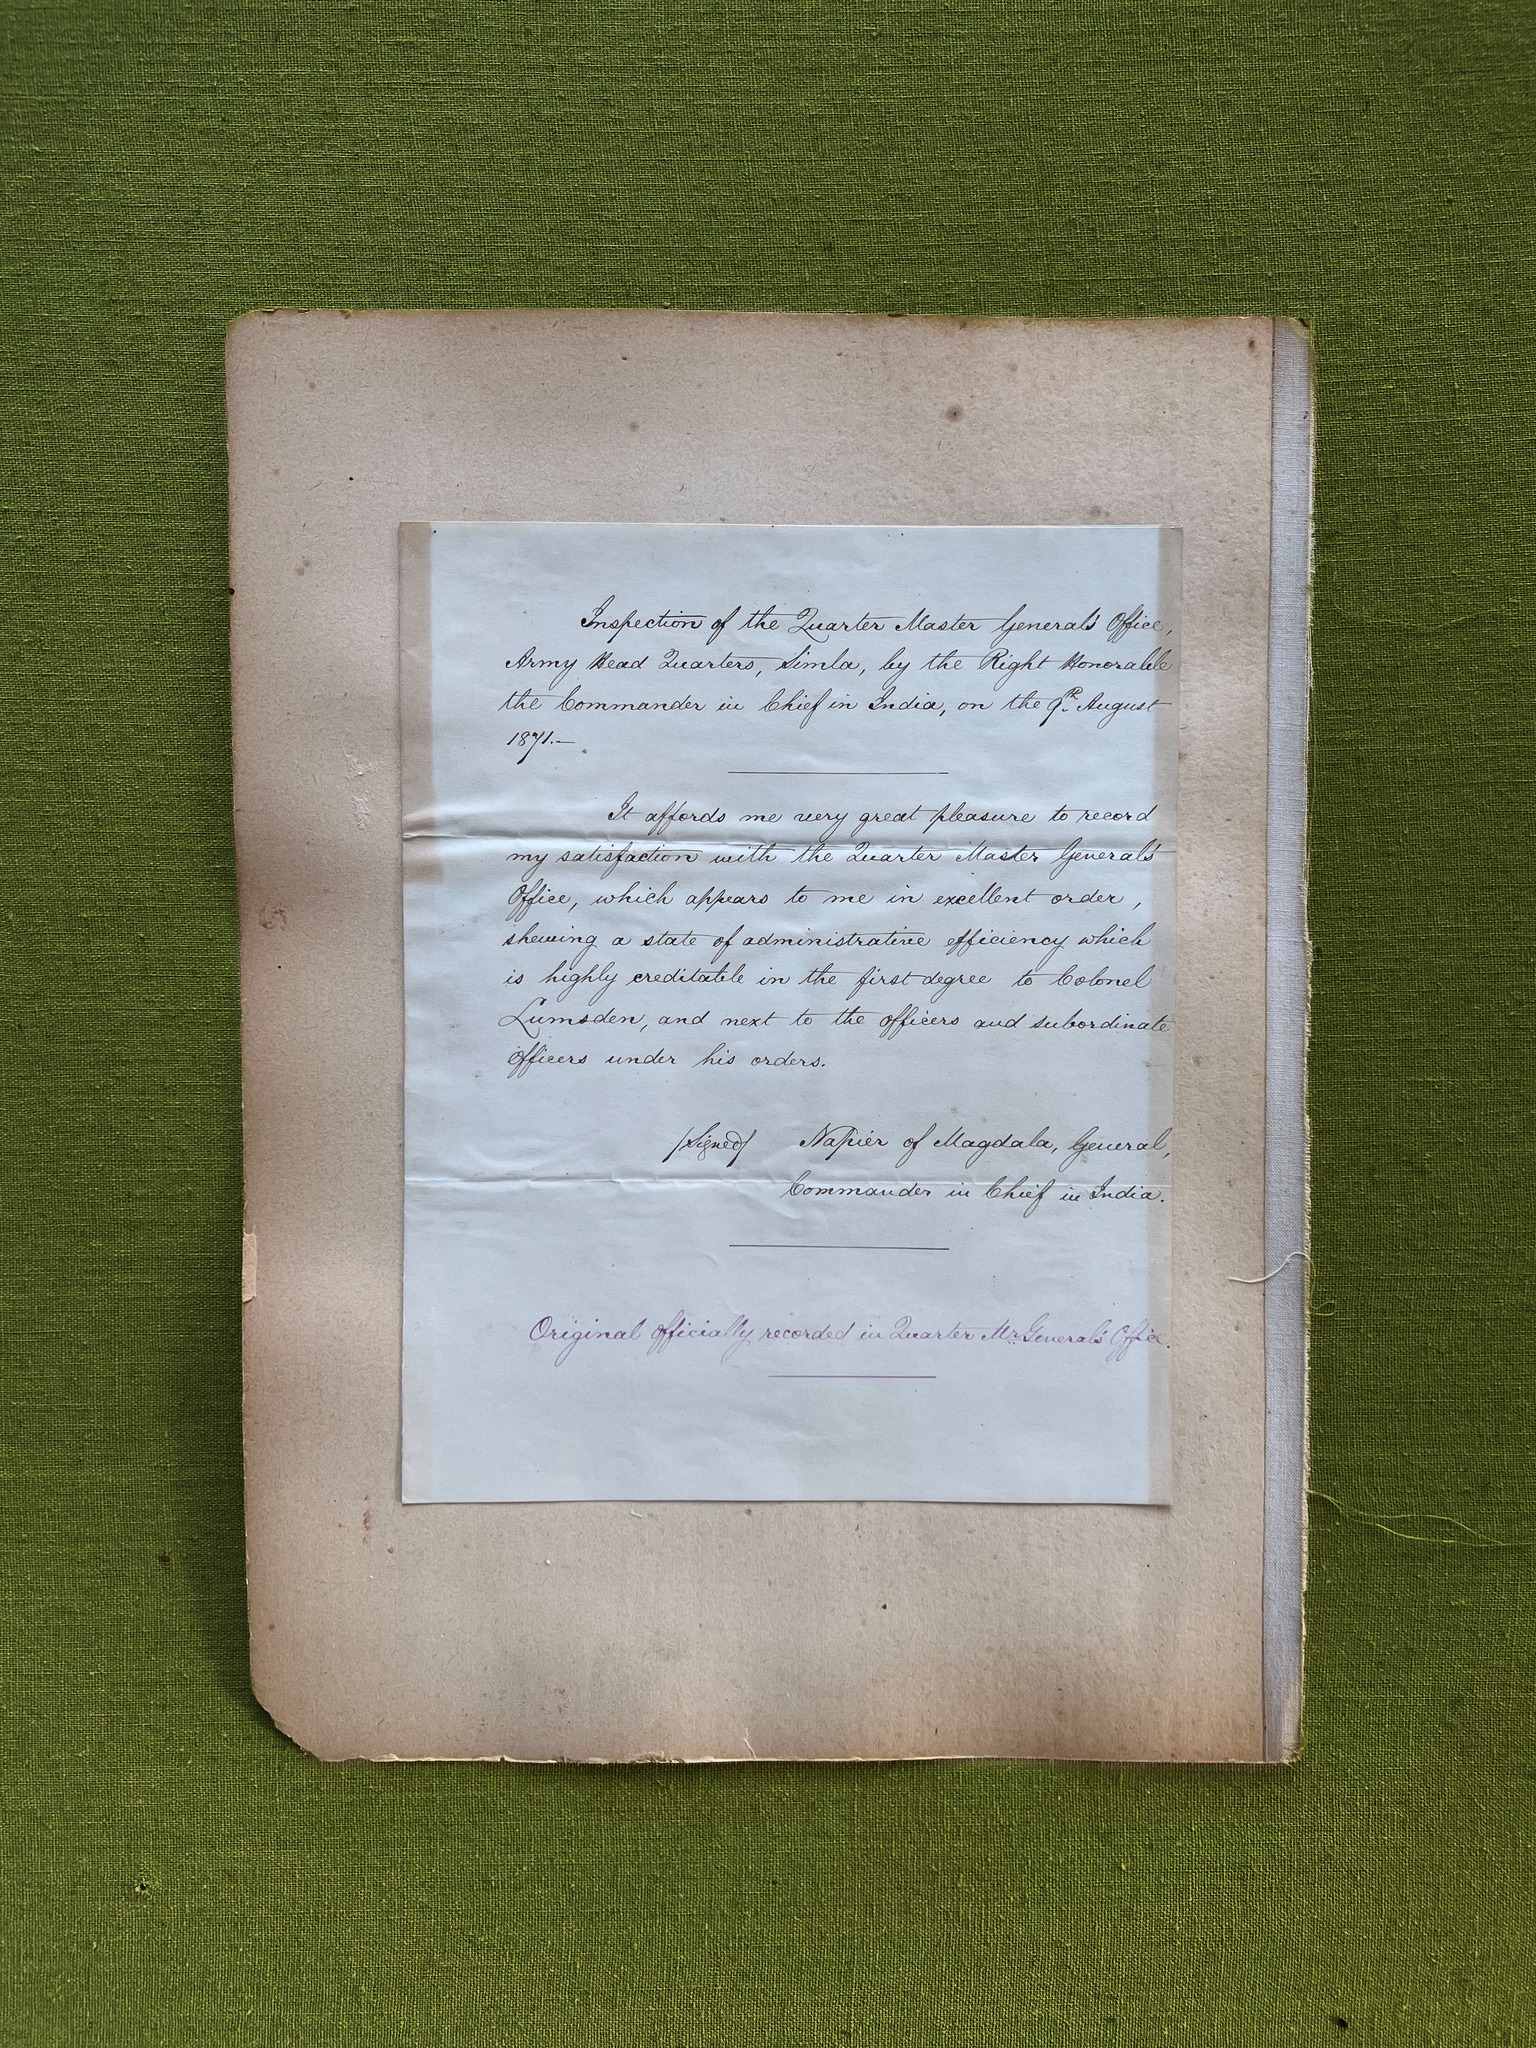 Inspection of the Quarter Master General's Office,
Army Head Quarters, Simla, by the Right Honorable
the Commander in Chief in India, on the 9th. August
1871.—
It affords me very great pleasure to record
my satisfaction with the Quarter Master General's
Office, which appears to me in excellent order,
shewing a state of administrative efficiency which
is highly creditable in the first degree to Colonel
Lumsden, and next to the officers and subordinate
officers under his orders.
/Signed/ Napier of Magdala, General,
Commander in Chief in India.
Original officially recorded in Quarter Mr. General's Office.